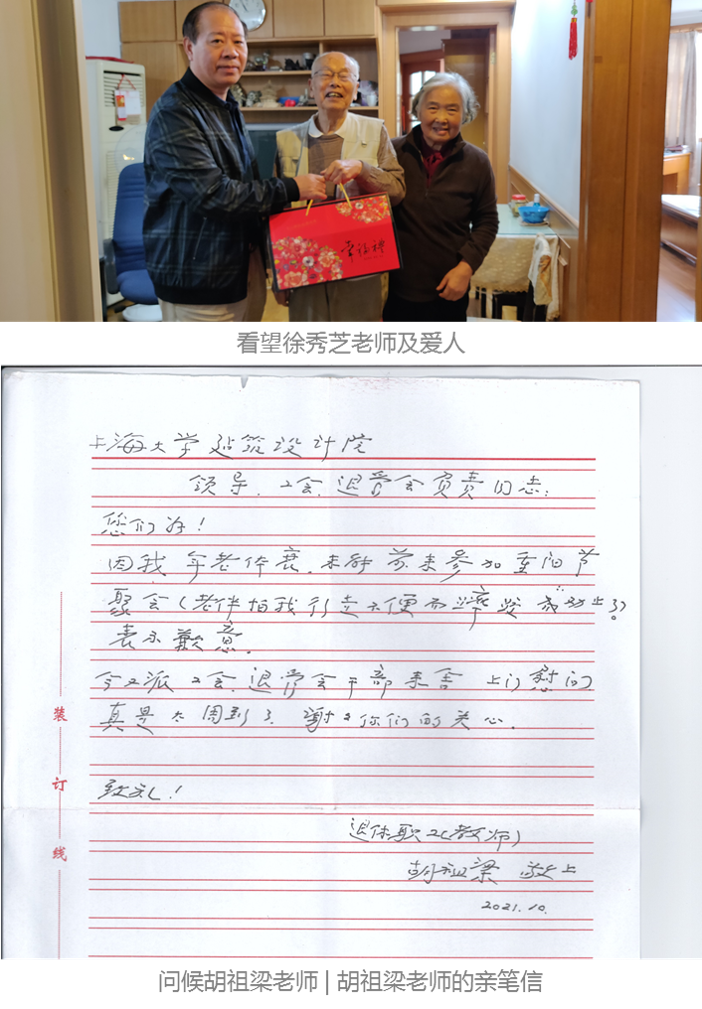 幸福禮
看望徐秀芝老师及爱人
上海大学建筑设计院
领导、工会、退管会负责同志:
您们好!
因我年老体衰.未能前来参加重阳节
聚会(老伴怕我行走不便而摔跤
表示歉意.
今又派工会.退管会干部来舍上门慰问
真是太周到了.谢谢你们的关心.
致礼!
退休职工(教师)
胡祖梁 敬上
2021.10.
装
订
线
问候胡祖梁老师 | 胡祖梁老师的亲笔信